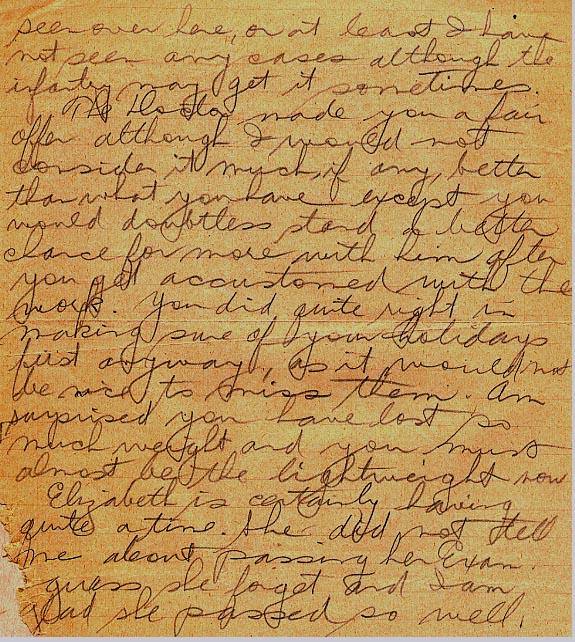 seen over here, or at least I have
not seen any cases although the
infantry may get it sometimes.
The Doctor made you a fair
offer although I would not
consider it much, if any, better
than what you have except you
would doubtless stand a better
chance for more with him after
you get accustomed with the
work. You did quite right in
making sure of your holidays
first anyway, as it would not
be nice to miss them. Am
surprised you have lost so
much weight and you must
almost be the lightweight now
Elizabeth is certainly having
quite a time. She did not tell
me about passing her Exam.
guess she forget and I am
glad she passed so well.